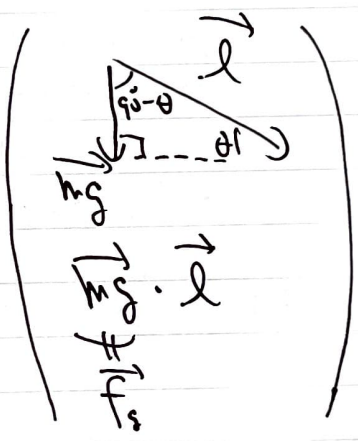 l⃗
90°-θ
θ
mg⃗
mg⃗ · l⃗
||
f⃗g